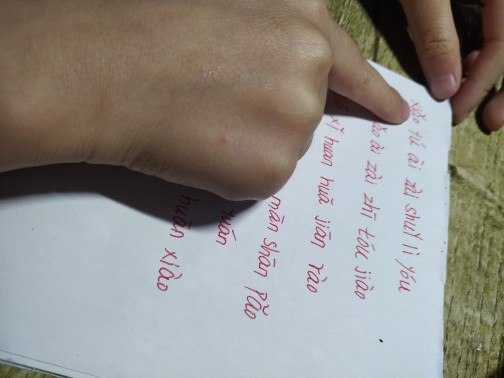 xiǎo yú ài zài shuǐ lǐ yóu
ǎo ài zài zhī tóu jiào
xǐ huan huā jiān rào
mǎn shān pǎo
huān xiào